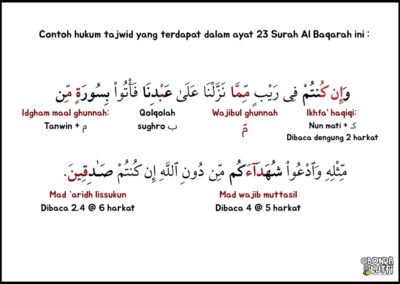 Contoh hukum tajwid yang terdapat dalam ayat 23 Surah Al Baqarah ini :
وَإِن كُنتُمْ فِى رَيْبٍ مِّمَّا نَزَّلْنَا عَلَىٰ عَبْدِنَا فَأْتُوا۟ بِسُورَةٍ مِّن
Idgham maal ghunnah: Qolqolah Wajibul ghunnah Ikhfa' haqiqi:
Tanwin + م sughro ب مّ Nun mati + ك
Dibaca dengung 2 harkat
مِّثْلِهِ وَٱدْعُوا۟ شُهَدَآءَكُم مِّن دُونِ ٱللَّهِ إِن كُنتُمْ صَـٰدِقِينَ.
Mad 'aridh lissukun Mad wajib muttasil
Dibaca 2.4 @ 6 harkat Dibaca 4 @ 5 harkat
GRONDA
LUTFI